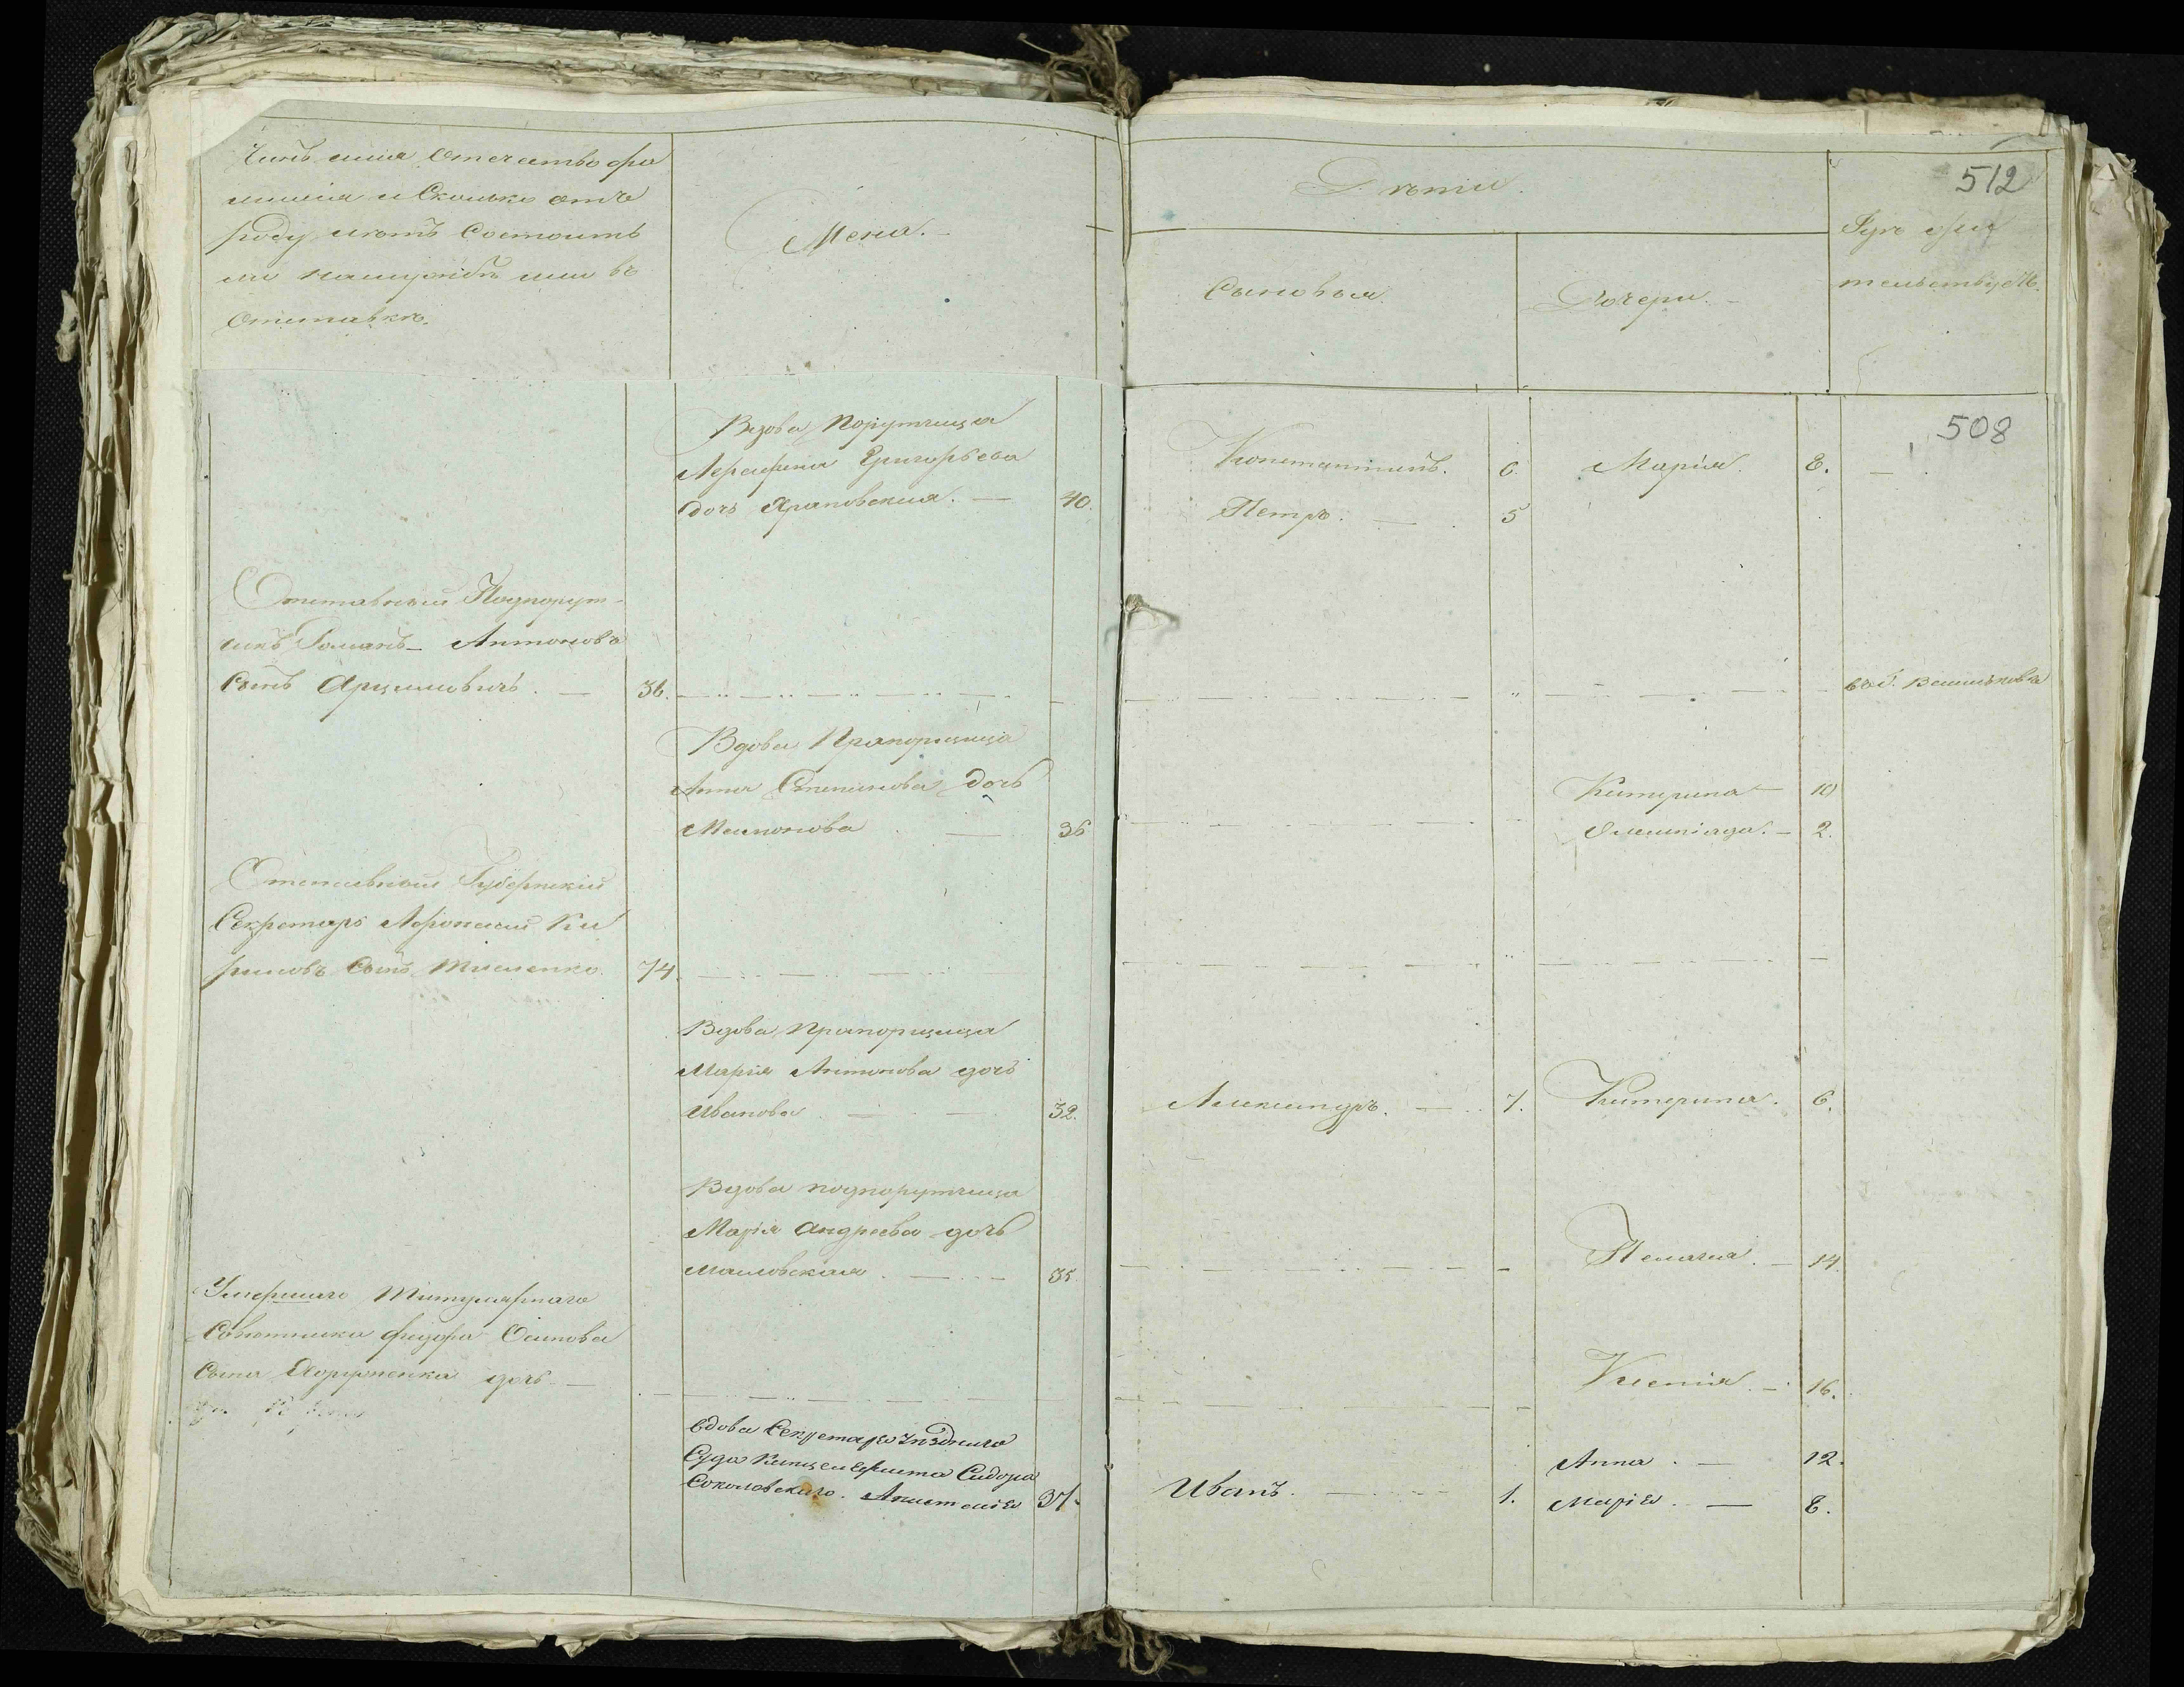 Чинъ имя Отечество фа
милия и Сколько отъ
роду летъ Состоитъ
ли на службе или въ
Отставке.
Жена.
Дети.
Сыновья.
Дочери.
512
Где жи
тельствуетъ.
508
Вдова Порутчица
Григорьева
дочь 40.
Константинъ. 6. Мария. 8.
Петръ. 5
Отставный Подпорут-
чикъ Романъ Антоновъ
Сынъ Арцимовичъ. 36.
въ г. Василькове
Вдова Прапорщица
Анна Степанова дочь
36
Катерина 10
Олимпіада. 2.
Отставный Губернский
Секретарь Афонасий Ки
риловъ Сынъ Тимченко. 74.
Вдова Прапорщица
Мария Антонова дочь
Иванова 32.
Александръ. 7. Катерина. 6.
Вдова подпорутчица
Марія Андреева дочь
Масловская. 35.
Пелагия. 14.
Умершаго Титулярнаго
Советника Федора Осипова
Сына дочь
Ксения. 16.
Вдова Секретаря Уезднаго
Суда Канцеляриста Сидора
Соколовскаго. 37.
Анна. 12.
Иванъ. 1. Марія. 8.